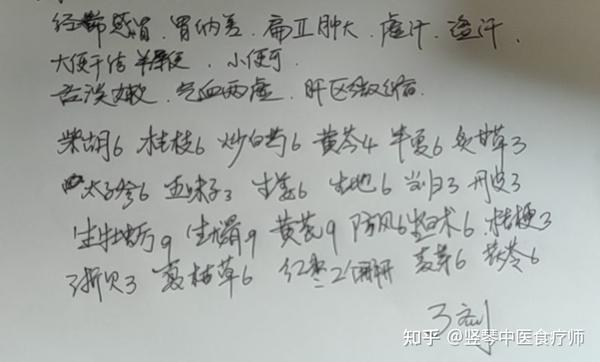 经常感冒、胃纳差、扁正肿大、虚汗、盗汗、
大便干结 羊屎便、小便可、
舌淡嫩、气血两虚、肝区微缩
柴胡6 桂枝6 炒白芍6 黄芩4 半夏6 炙甘草3
太子参6 五味子3 生姜6 生地6 当归3 丹皮3
生牡蛎9 生龙骨9 黄芪9 防风6 生白术6 桔梗3
浙贝3 夏枯草6 红枣2个掰开 麦芽6 茯苓6
3剂
知乎 @竖琴中医食疗师